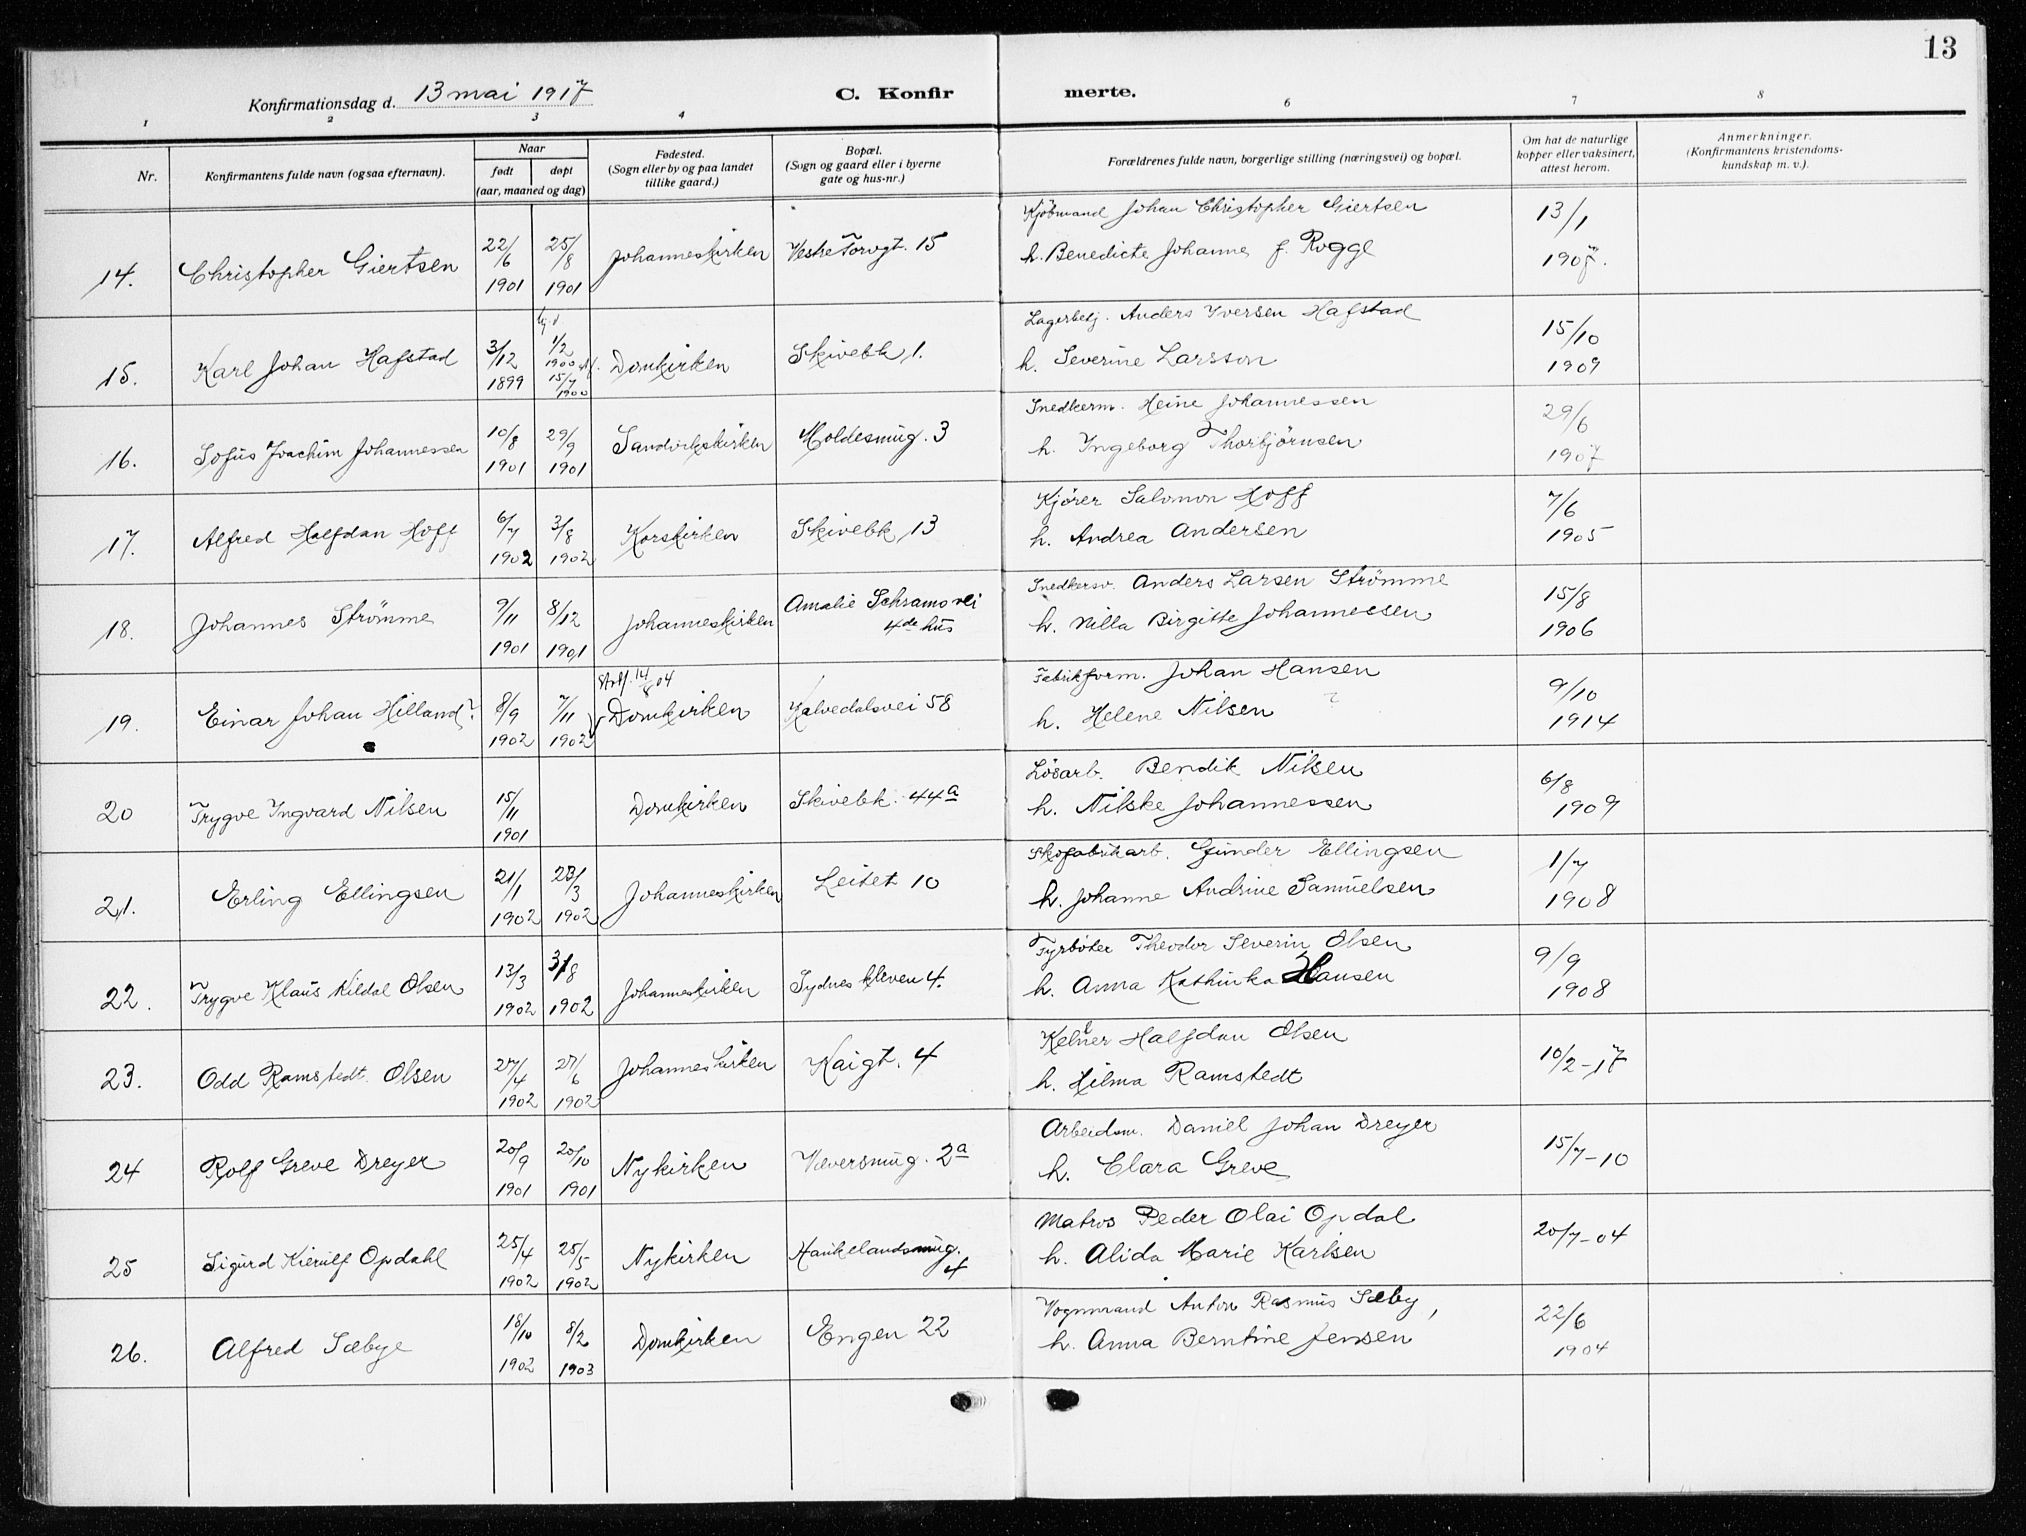 13
Konfirmationsdag d. 13 mai 1917 C. Konfir merte.
1 2 3 4 6 7 8
Nr.
Konfirmantens fulde navn (ogsaa efternavn).
Naar
født døpt
(aar, maaned og dag)
Fødested.
(Sogn eller by og paa landet
tillike gaard.)
Bopæl.
(Sogn og gaard eller i byerne
gate og hus-nr.)
Forældrenes fulde navn, borgerlige stilling (næringsvei) og bopæl.
Om hat de naturlige
kopper eller vaksinert,
attest herom.
Anmerkninger.
(Konfirmantens kristendoms-
kundskap m. v.).
14. Christopher Giertsen 22/6 1901 25/8 1901 Johanneskirken Vestre Torvgt. 15
Kjøbmand Johan Christopher Giertsen
h. Benedicte Johanne f. Rogge
13/1
1907.
15. Karl Johan Hafstad 3/12 1899 1/2 1900 15/7 1900 Domkirken Skivebk 1.
Lagerbetj. Anders Iversen Hafstad
h. Severine Larsson
15/10
1909
16. Sofus Joachim Johannessen 10/8 1901 29/9 1901 Sandvikskirken Holdesmug. 3
Snedkerm. Heine Johannessen
h. Ingeborg Thorbjörnsen
29/6
1907
17. Alfred Halfdan Hoff 6/7 1902 3/8 1902 Korskirken Skivebk 13
Kjörer Salomon Hoff
h. Andrea Andersen
7/6
1905
18. Johannes Strömme 9/11 1901 8/12 1901 Johanneskirken Amalie Schrams vei
4de hus
Snedkersv. Anders Larsen Strömme
h. Nilla Birgitte Johannessen
15/8
1906
19. Einar Johan Hilland? 8/9 1902 7/11 1902 14/8 04 Domkirken Kalvedalsvei 58
Fabrikform. Johan Hansen
h. Helene Nilsen ?
9/10
1914
20 Trygve Ingvard Nilsen 15/11 1901 Domkirken Skivebk. 44a
Lösarb. Bendik Nilsen
h. Nilske Johannessen
6/8
1909
21. Erling Ellingsen 21/1 1902 23/3 1902 Johanneskirken Leitet 10
Skofabrikarb. Gunder Ellingsen
h. Johanne Andrine Samuelsen
1/7
1908
22. Trygve Klaus Kildal Olsen 13/3 1902 3/8 1902 Johanneskirken Sydneskleven 4.
Fyrböter Theodor Severin Olsen
h. Anna Kathinka Hansen
9/9
1908
23. Odd Ramstedt Olsen 27/4 1902 27/6 1902 Johanneskirken Kaigt. 4
Kelner Halfdan Olsen
h. Hilma Ramstedt
10/2-17
24 Rolf Greve Dreyer 20/9 1901 20/10 1901 Nykirken Væversmug. 2a
Arbeidsm. Daniel Johan Dreyer
h. Clara Greve
15/7-10
25 Sigurd Kierulf Opdahl 25/4 1902 25/5 1902 Nykirken Haukelandsmug.
4
Matros Peder Olai Opdal
h. Alida Marie Karlsen
20/7-04
26. Alfred Sæbye 18/10 1902 8/2 1903 Domkirken Engen 22
Vognmand Anton Rasmus Sæby,
h. Anna Berntine Jensen
22/6
1904